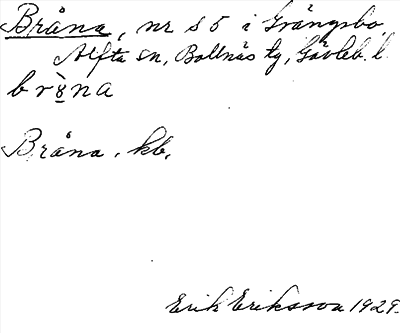 Bråna, nr s 5 i Grängsbo,
Alfta sn, Bollnäs tg, Gävleb. l.
bròna
Bråna. kb.
Erik Eriksson 1929.